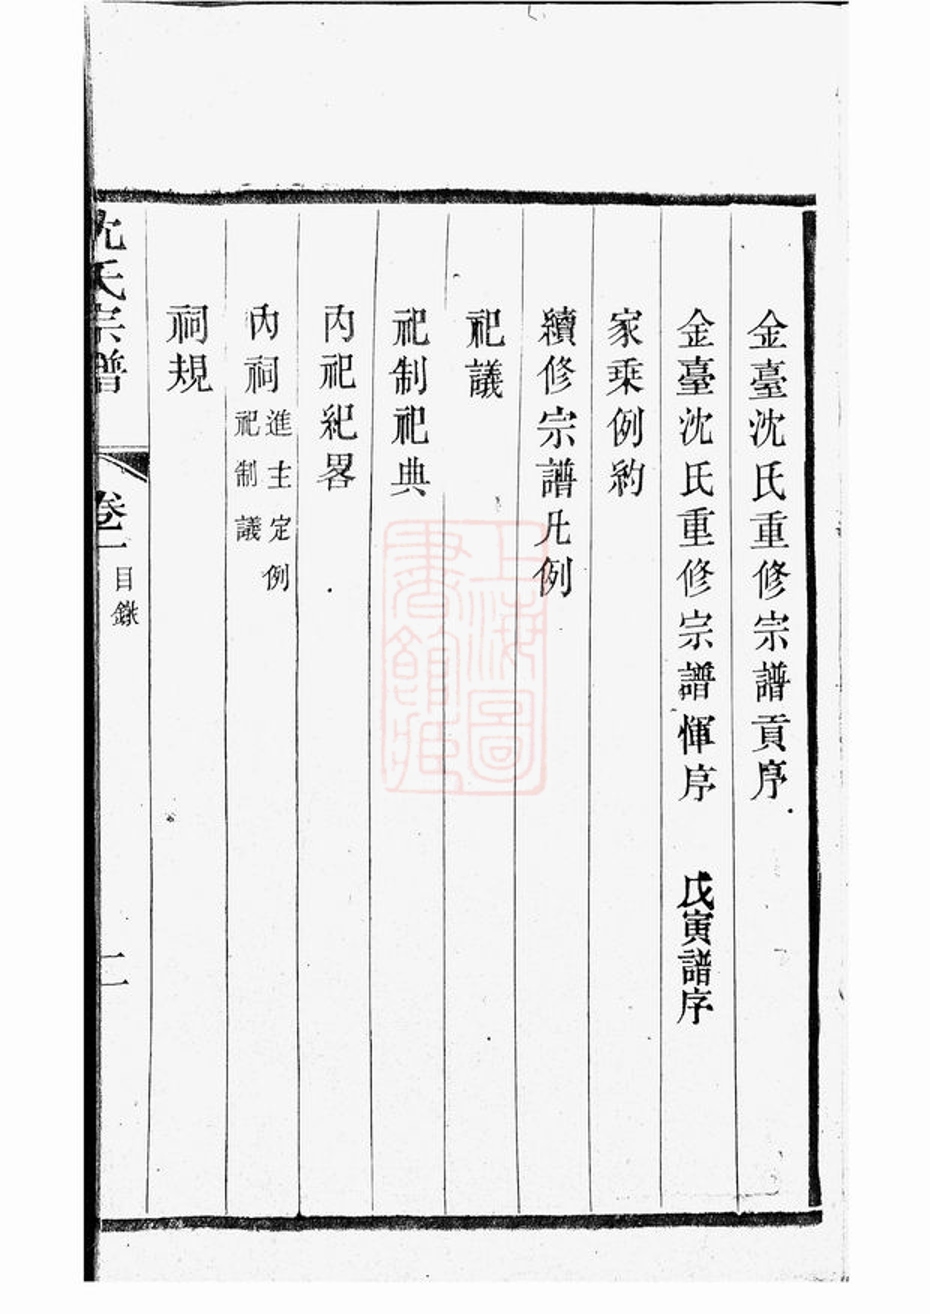 金臺沈氏重修宗譜貢序
金臺沈氏重修宗譜惲序　戊寅譜序
家乗例約
續修宗譜凡例
祀議
祀制祀典
内祀紀畧
内祠進主定例
祀制議
祠規
沈氏宗譜
卷一
目錄
二
上海圖
書館藏